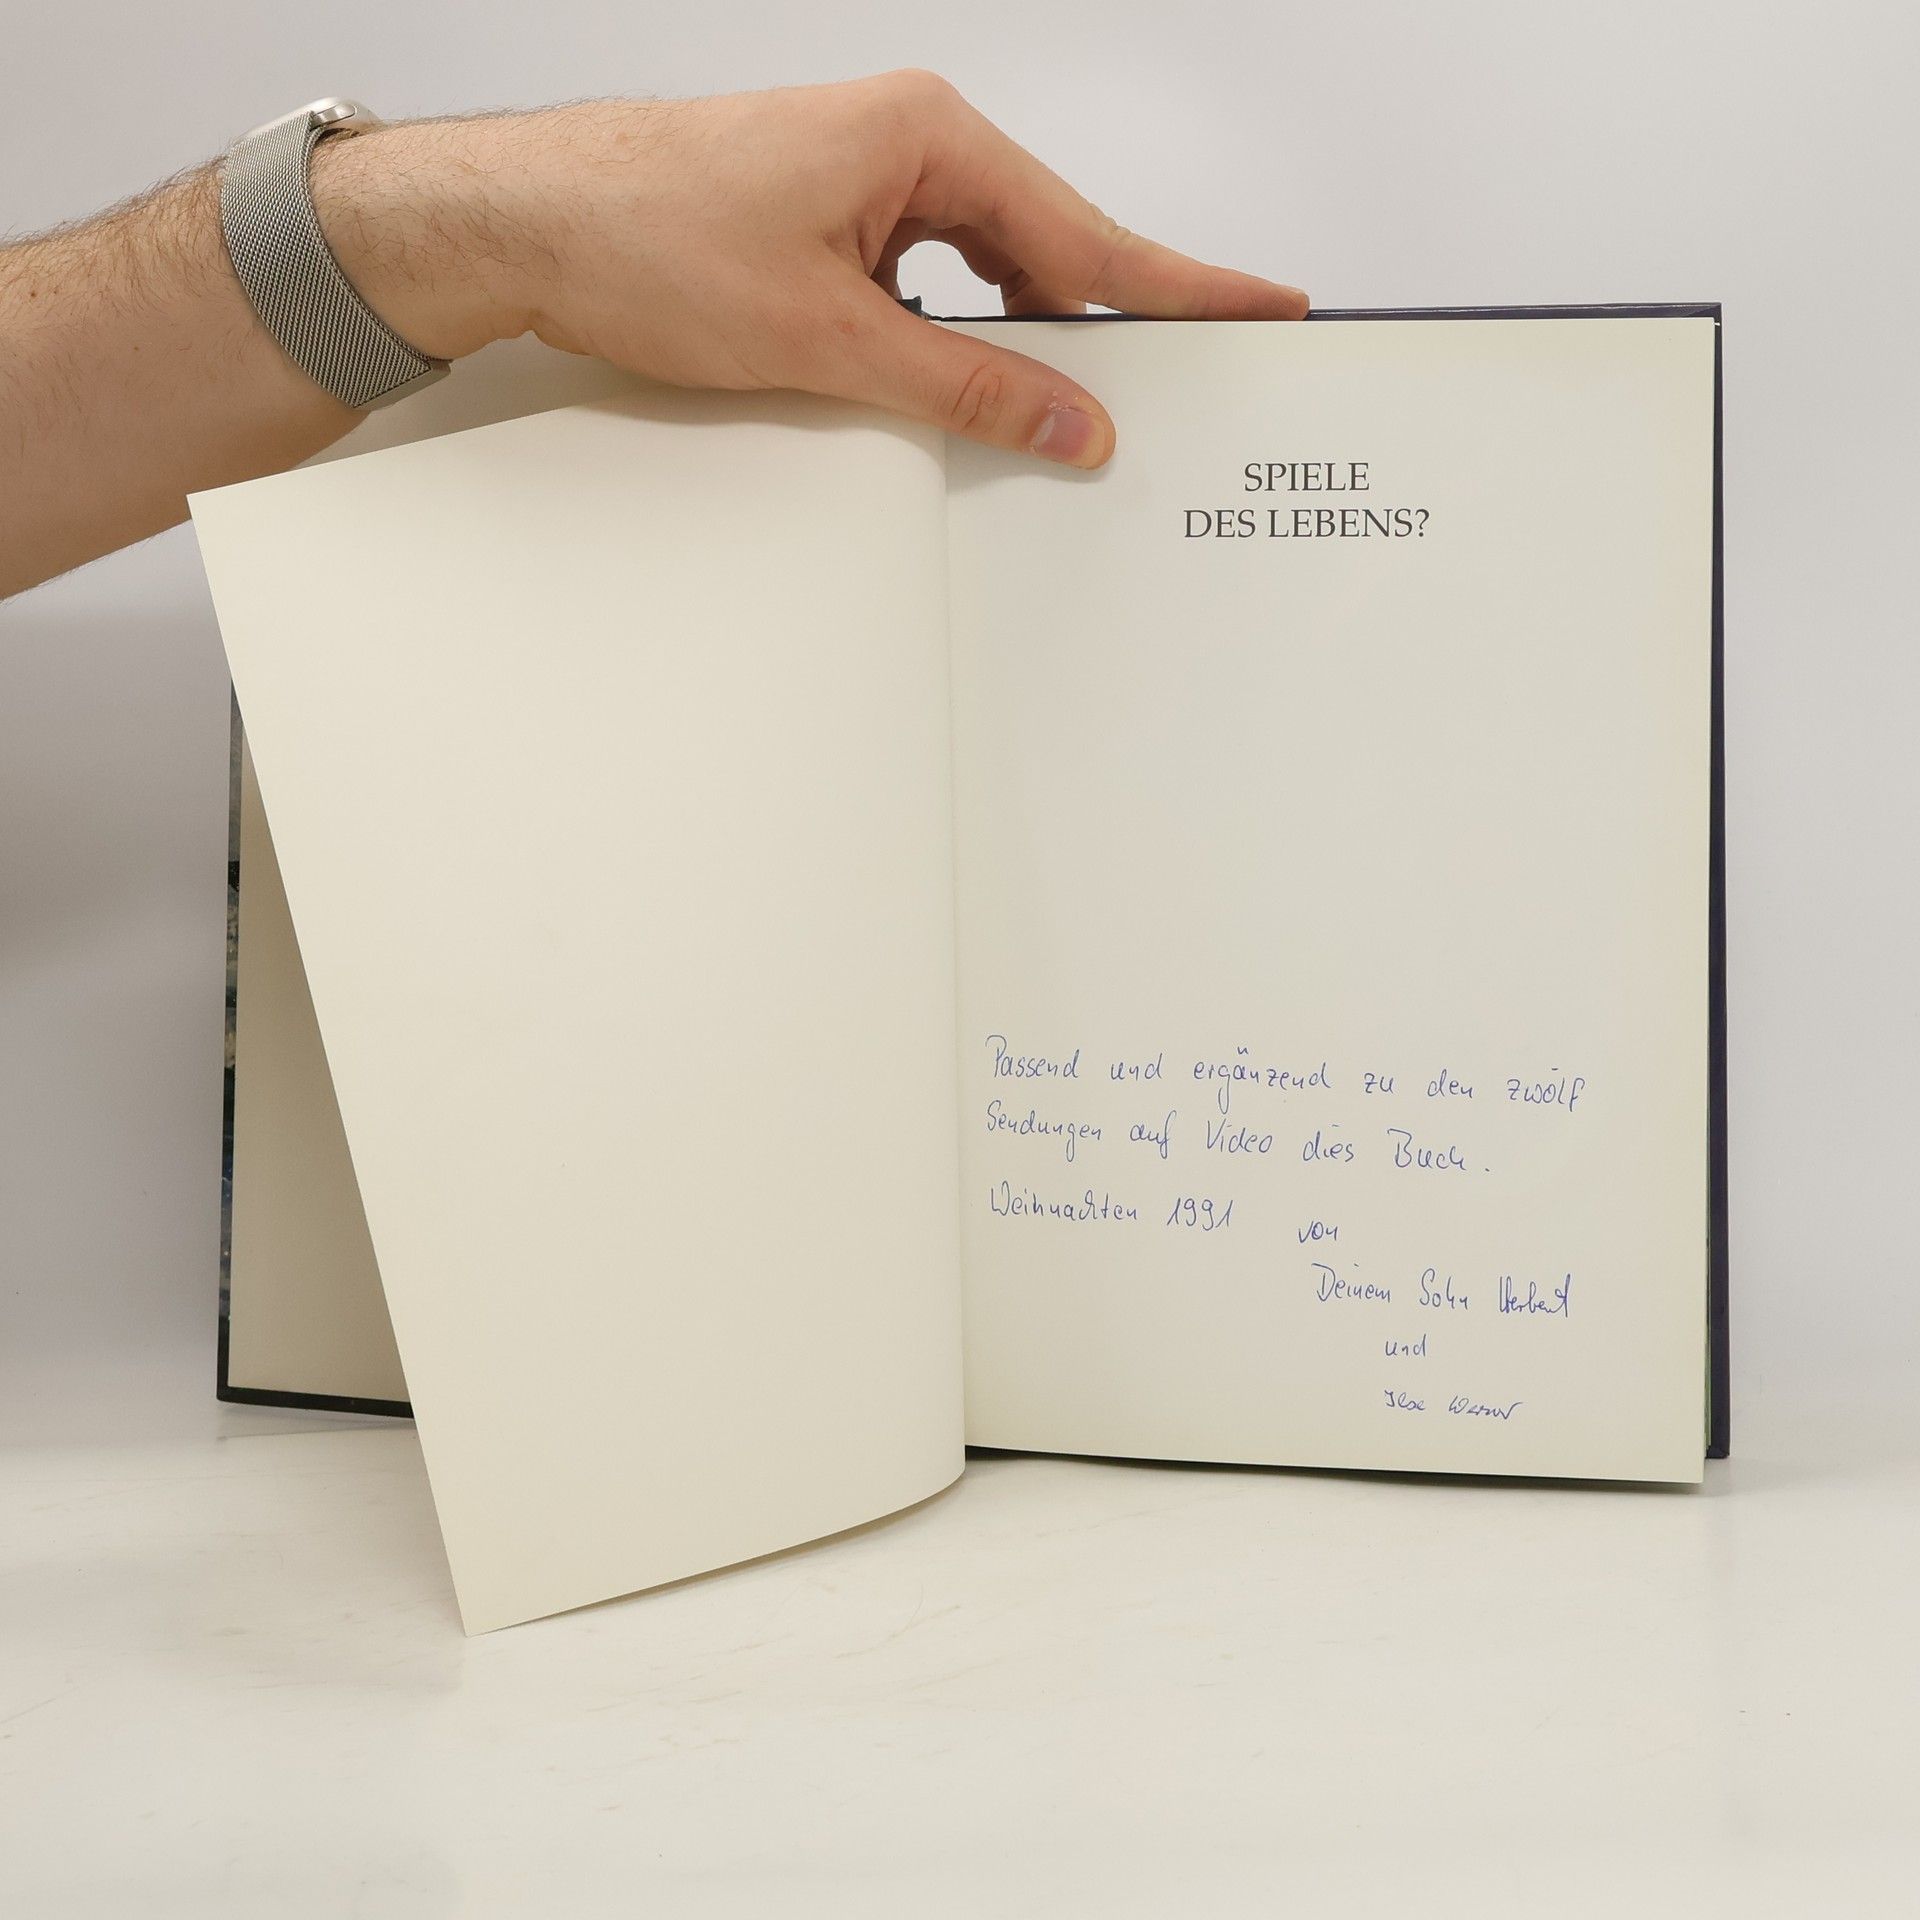 SPIELE
DES LEBENS?
Passend und ergänzend zu den zwölf
Sendungen auf Video dies Buch.
Weihnachten 1991 von
Deinem Sohn Herbert
und
Ilse